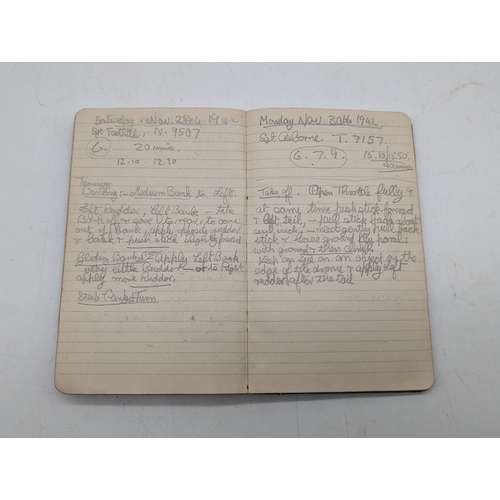 Saturday. Nov. 28th 1942
Sgt N. 9507
6. 20 mins.
12.10 12.30
Banking:- Medium Bank to Left.
Left Rudder, Left Bank - take
Bank off & ease to come
out of Bank, apply opposite rudder
& bank & push stick slightly forward
Gliding Banks Apply Left Bank
very little Rudder - to right
apply more rudder.
Steep Banked turn
Monday Nov. 30th 1942
Sgt Osborne T. 7157.
6. 7. 9. 15.10 15.50.
40 mins
Take off. Open Throttle fully &
at same time push stick forward
& lift tail, - pull stick back about
an inch, - next gently pull back
stick & leave ground fly parallel
with ground & then climb.
Keep an eye on an object on the
edge of the drome & apply left
rudder after the tail